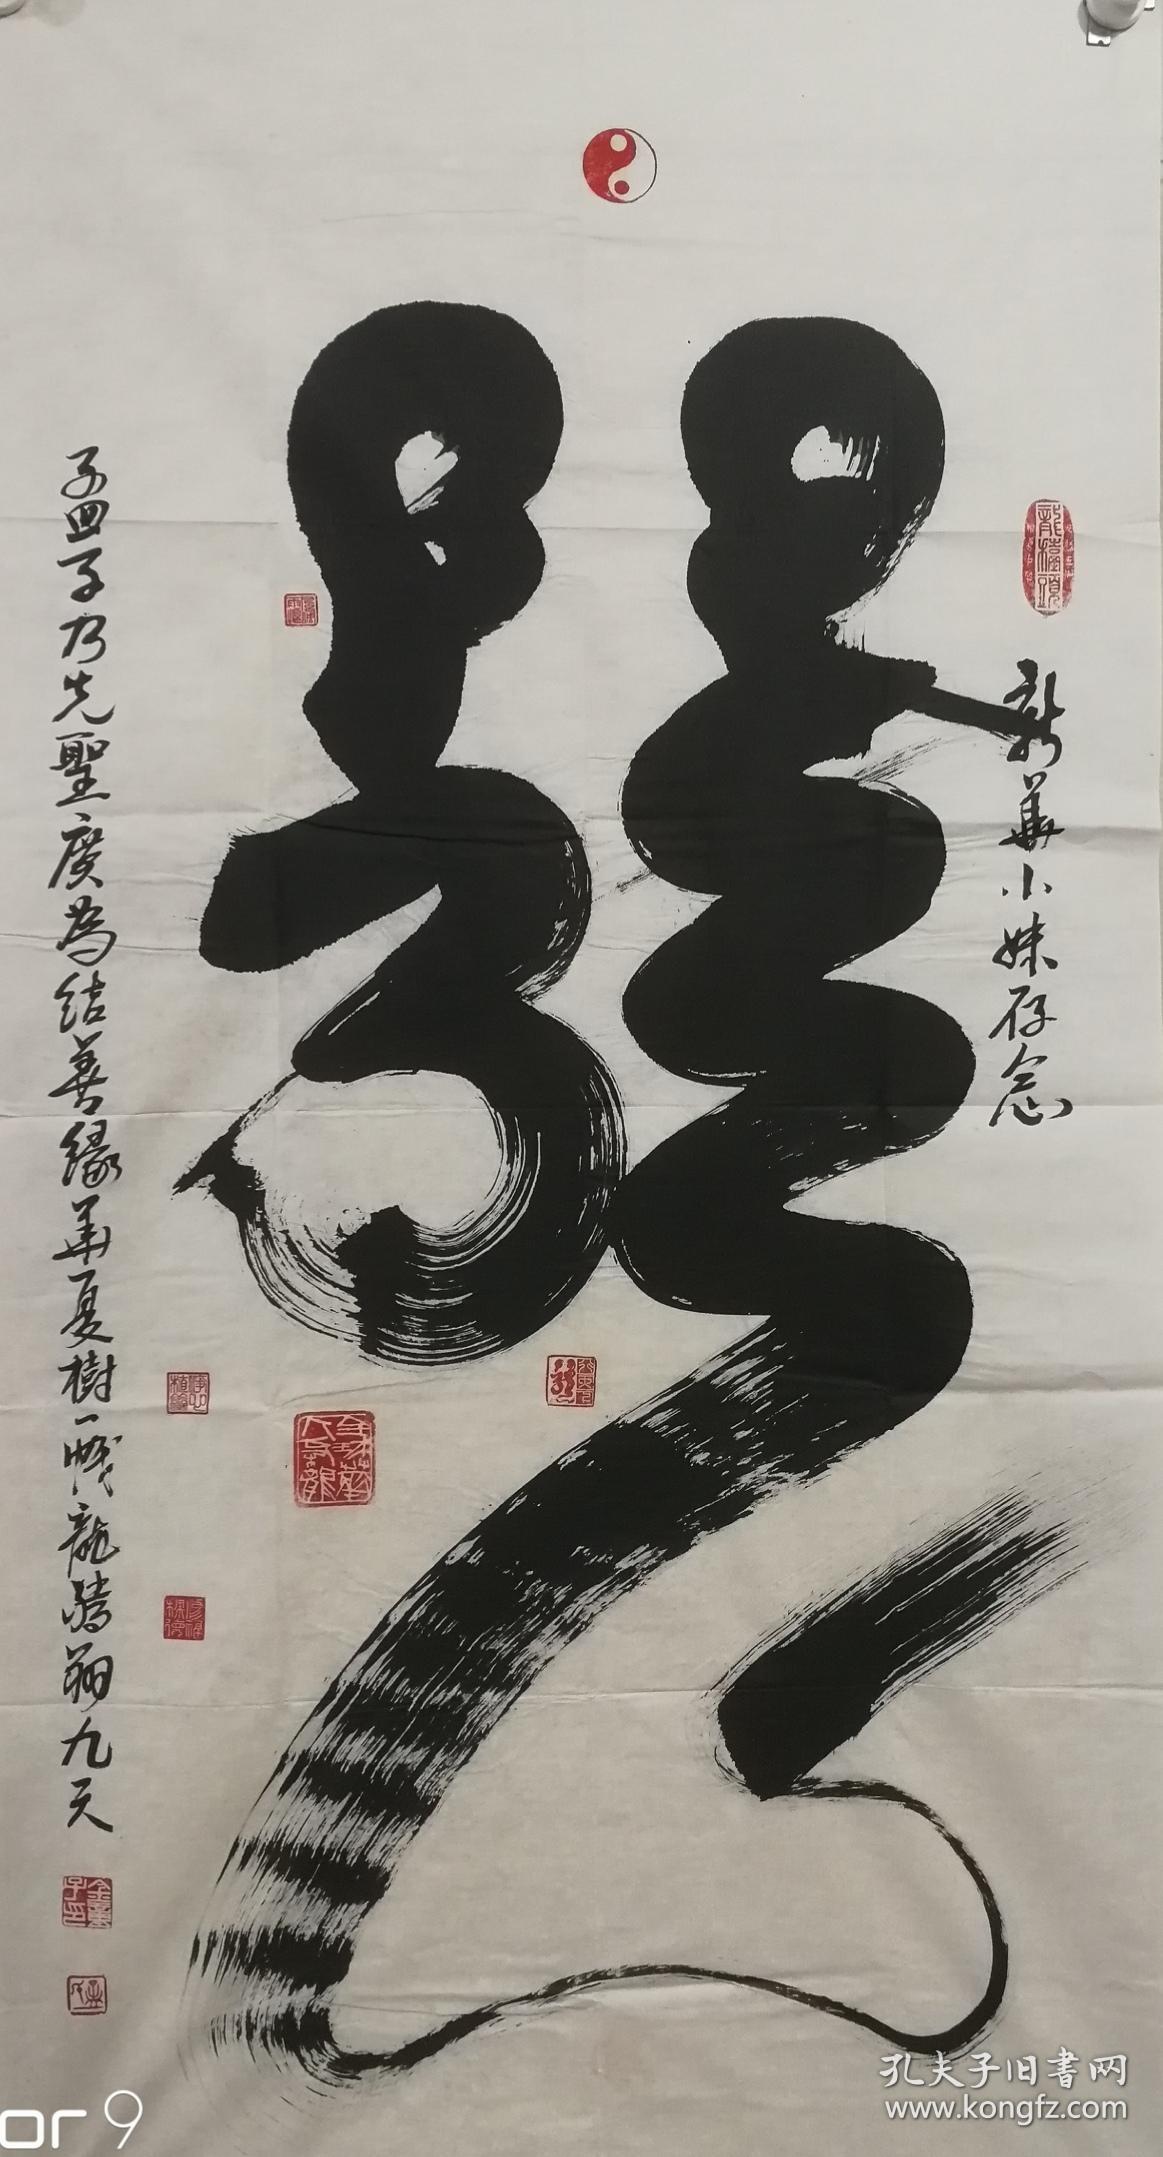 龍
新華小妹存念
孟四子乃先聖廣為結善緣華夏樹一幟龍騰翔九天
孔夫子旧書网
www.kongfz.com
or 9